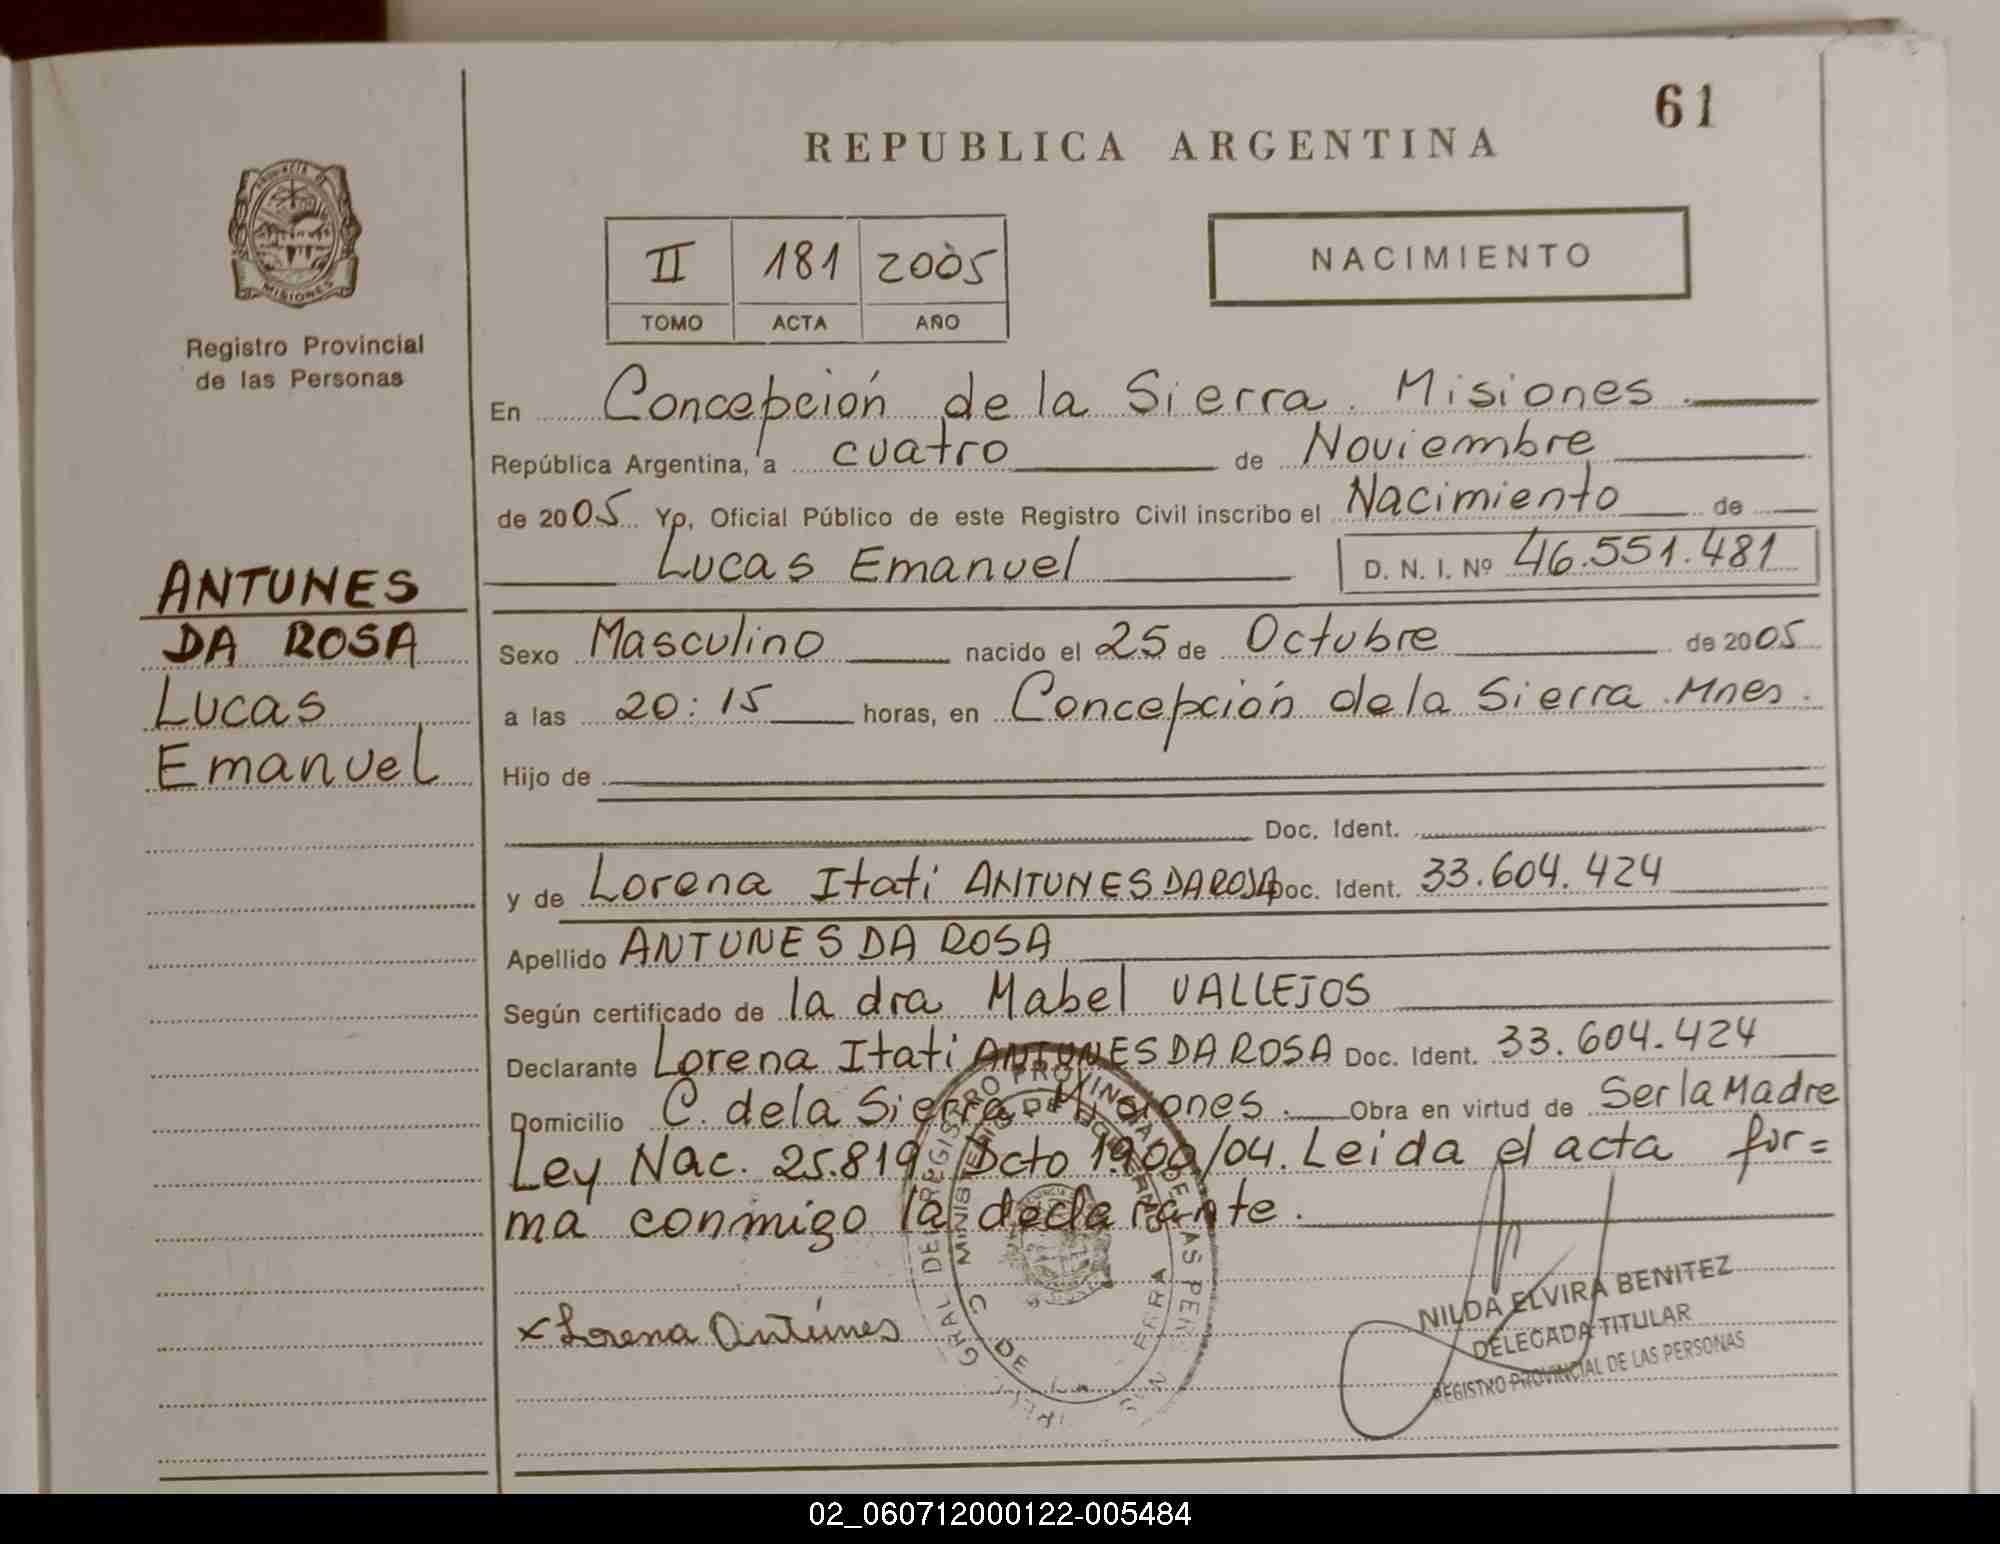 61
REPUBLICA ARGENTINA
PROVINCIA DE
MISIONES
Registro Provincial
de las Personas
II 181 2005
TOMO ACTA AÑO
NACIMIENTO
En Concepción de la Sierra. Misiones.
República Argentina, a cuatro de Noviembre
de 2005 Yo, Oficial Público de este Registro Civil inscribo el Nacimiento de
Lucas Emanuel D. N. I. Nº 46.551.481
ANTUNES
DA ROSA
Lucas
Emanuel
Sexo Masculino nacido el 25 de Octubre de 2005
a las 20:15 horas, en Concepción de la Sierra. Mnes.
Hijo de
Doc. Ident.
y de Lorena Itati ANTUNES DA ROSA Doc. Ident. 33.604.424
Apellido ANTUNES DA ROSA
Según certificado de la dra Mabel VALLEJOS
Declarante Lorena Itati ANTUNES DA ROSA Doc. Ident. 33.604.424
Domicilio C. de la Sierra. Misiones. Obra en virtud de Ser la Madre
Ley Nac. 25.819 Dcto 1.900/04. Leida el acta fir=
ma conmigo la declarante.
x Lorena Antúnes
NILDA ELVIRA BENITEZ
DELEGADA TITULAR
REGISTRO PROVINCIAL DE LAS PERSONAS
02_060712000122-005484